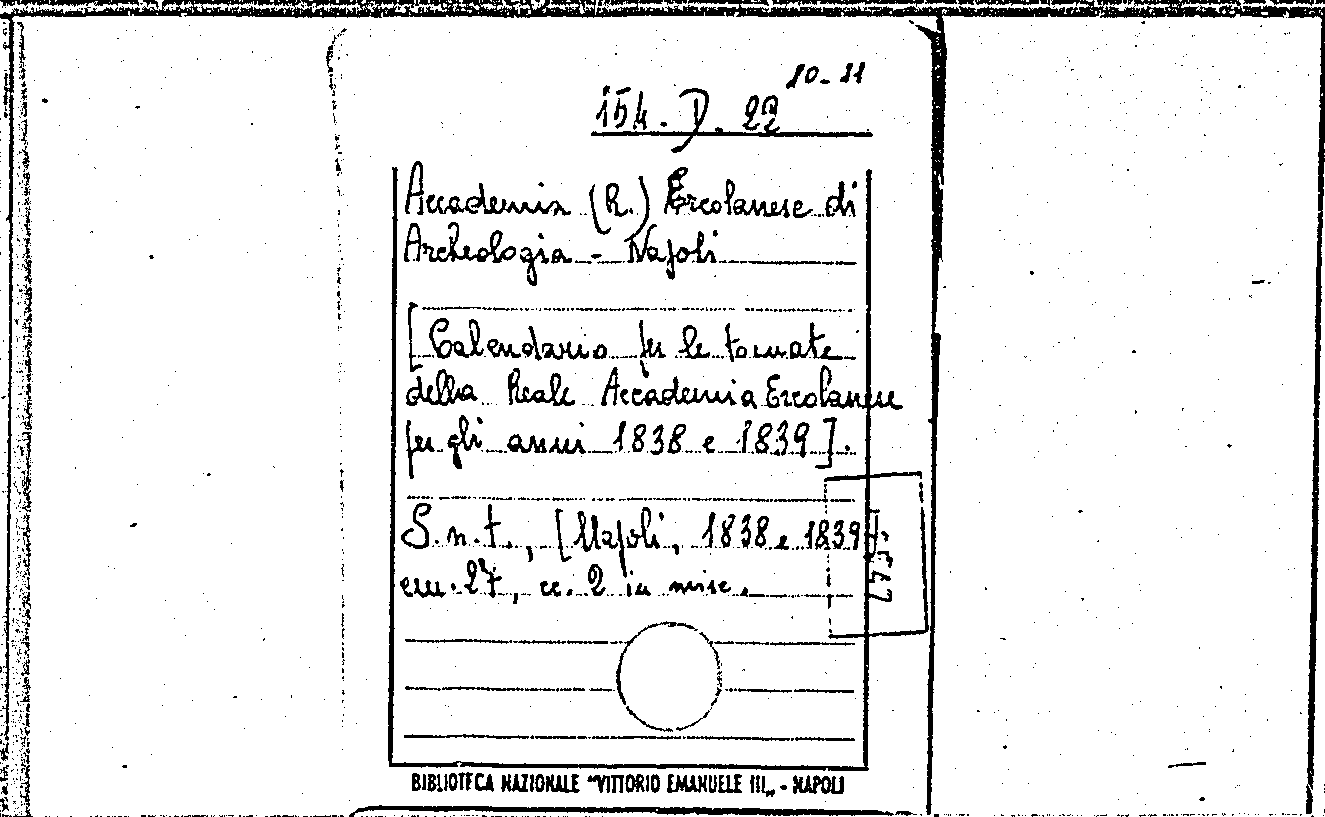 10-11
154. D. 22
Accademia (R.) Ercolanese di
Archeologia - Napoli
[Calendario per le tornate
della Reale Accademia Ercolanese
per gli anni 1838 e 1839].
S.n.t., [Napoli, 1838 e 1839].
cm. 27, cc. 2 in misc.
547
BIBLIOTECA NAZIONALE "VITTORIO EMANUELE III„ - NAPOLI